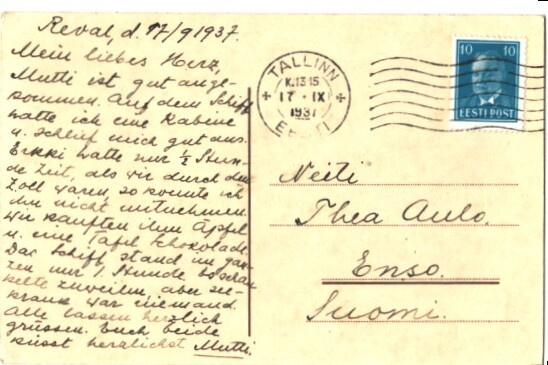 Reval, d. 17/9 1937.
Mein liebes Herz,
Mutti ist gut ange-
kommen. Auf dem Schiff
hatte ich eine Kabine
u. schlief mich gut aus.
Erkki hatte nur ½ Stun-
de Zeit, als wir durch den
Zoll waren, so konnte ich
ihn nicht mitnehmen.
Wir kauften ihm Äpfel
u. eine Tafel Schokolade
Das Schiff stand im gan-
zen nur 1 Stunde so schau
kelte zuweilen, aber see-
krank war niemand.
Alle lassen herzlich
grüssen. Euch beide
küsst herzlichst Mutti.
TALLINN
K. 13 15
17 · IX
1937
EESTI
10 10
EESTI POST
Neiti
Thea Aulo.
Enso.
Suomi.